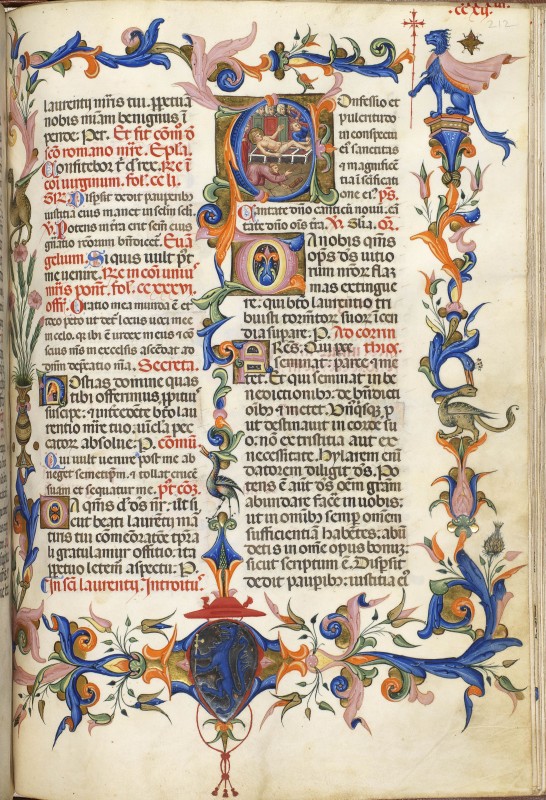 ccxii.
212
laurentij mris tui. ppetua
nobis miam benignus i
pende: Per. Et fit com o
ico romano mre. Epla.
Confitebor t dne. Re i
coi uirginum. fol. cc li
Dispsit dedit pauperib
iustitia eius manet in sclm scli.
V. Potens in tra erit semen eius
gnatio rcorum bndicet. Euā
gelium. Si quis uult pt
me uenire. Re in coni unius
mris pont. fol. cc xxxvi.
offm. Oratio mea munda e et
ideo peto ut detur locus uoci mee
in celo. qi ibi e iudex meus et con
scius mis in excelsis ascendat ad
dnm depcatio mea. Secreta.
Hostias domine quas
tibi offerimus ppitius
suscipe: et intercedente bto lau
rentio mre tuo. uincla pec
catoz absolue. P. comu
Qui uult uenire post me ab
neget semetipm. et tollat crucem
suam et sequatur me. pt com.
Da qms dne ds nr. ut si
cut beati laurentij ma
rtis tui comeoratoe tpra
li gratulamur offitio. ita
ppetuo letem aspectu. P.
In scti laurentij. Introitus.
Confessio et
pulcritudo
in conspectu
ei sanctitas
et magnificen
tia i scificati
one ei. ps.
Cantate dno canticu nouu. can
tate dno ois tra. V. Glia. or.
Da nobis qms
ops ds uitio
rum nroz flaz
mas extingue
re: qui bto laurentio tri
buisti tormtoz suoz icen
dia supare. P. Ad corin
Fres. Qui pce thios.
seminat: parce et me
tet. Et qui seminat in be
nedictionib: de bndicti
oib et metet. Unusqsq p
ut destinauit in corde su
o: non ex tristitia aut ex
necessitate. hylarem eni
datorem diligit ds. Po
tens e aut ds oem gram
abundare facere in uobis:
ut in omib semp omem
sufficientiam habetes: abu
detis in ome opus bonuz.
sicut scriptum e. Dispsit
dedit paupib: iustitia ei